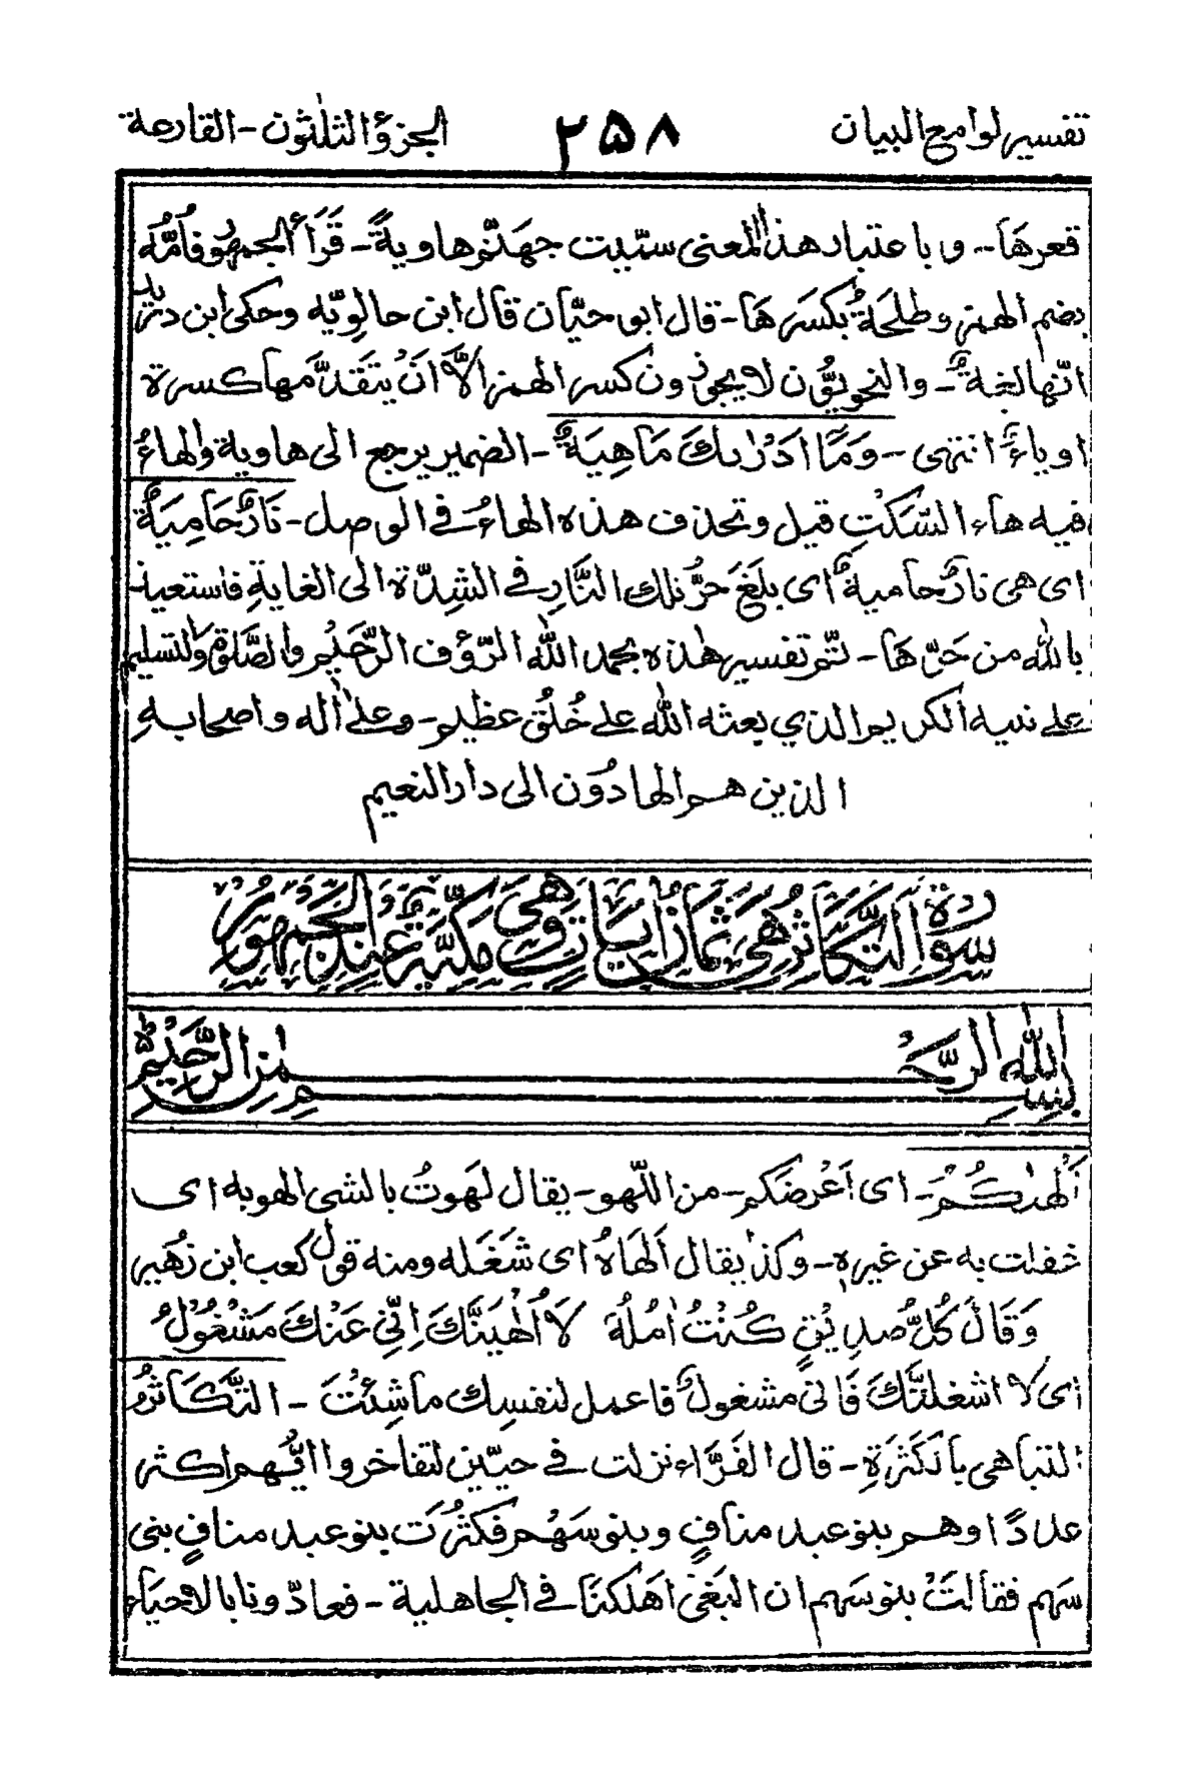 تفسير لوامع البيان ۲۵۸ الجزؤ الثلثون - القارعة
قعرهَا - و باعتبار هذا المعنى سمّيت جهنّم هاويةً - قَرَأ الجمهور فاُمُّه
بضم الهمز و طلحَةُ بكَسَرهَا - قال ابو حيّان قال ابن خالويّه وحكى ابن دريد
انّها لغةٌ - والنحويّون لا يجوزون كسر الهمز الّا انْ يتقدَّمها كسرة
اوياءٌ انتهى - وَمَآ ادَرٰىكَ مَاهِيَةٌ - الضمير يرجع الى هاوية والهاءُ
فيه هاء السَّكَتِ قيل وتحذف هذه الهاءُ فى الوصل - نَارٌ حَامِيَةٌ
اى هى نارٌ حاميةٌ اى بَلَغَ حَرُّ تلك النَّارِ فى الشِدّة الى الغايةِ فاستعيذ
بالله من حَرِّهَا - تتم تفسير هٰذه بحمد الله الرّؤف الرّحيم والصَّلوٰة والتسليم
على نبيه الكريم الذي بعثه الله على خُلُق عظيم - وعلىٰ اٰله واصحابهِ
الذين هم الهادُون الى دار النعيم
سُورَة التَّكَاثُر هِىَ ثَمَانُ اٰيَاتٍ وَّهِىَ مَكِّيَّةٌ عِنْدَ الجَمْهُورِ
بِسْمِ اللهِ الرَّحْمٰنِ الرَّحِيْمِ
اَلْهٰىكُمُ - اى اَعْرضَكم - من اللّهو - يقال لَهَوتُ بالشى الهو به اى
غفلت به عن غيرهٖ - وكذا يقال اَلهَاهُ اى شَغَله ومنه قول كعب ابن زُهَير
وَقَالَ كُلُّ صديْقٍ كُنْتُ اٰمُلُهُ لَا اُلْهِيَنَّكَ اِنِّى عَنْكَ مَشْغُوْلُ
اى لا اشغلنَّكَ فَانى مشغولٌ فاعمل لنفسِك ماشِئْتَ - التَّكَاثُرُ
التباهى بالكَثرَةِ - قال الفَرَّاء نزلت فى حيّين لتفاخروا ايُّهم اكثر
عددًا وهم بنو عبد منافٍ و بنو سَهْم فكثُرَت بنو عبد منافٍ بنى
سَهم فقالَتْ بنو سَهم ان البَغْىَ اَهْلكنَا فى الجاهلية - فعادّ ونا بالاحيَاء